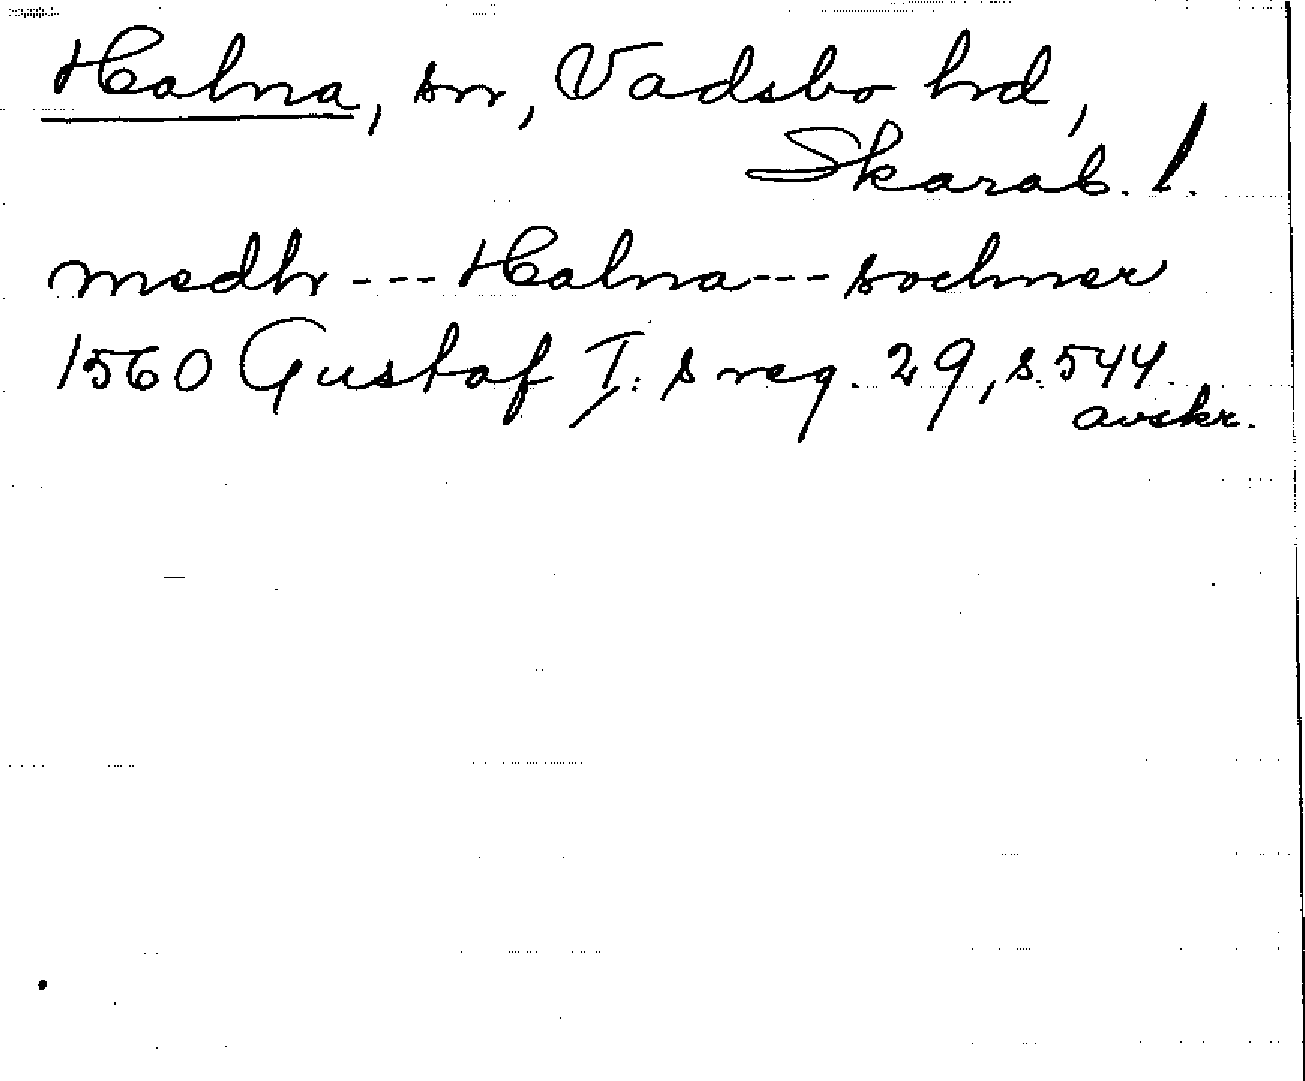 Halna, sn, Vadsbo hd,
Skarab. l.
medh --- Halna --- sochner
1560 Gustaf I:s reg. 29, s. 544.
avskr.